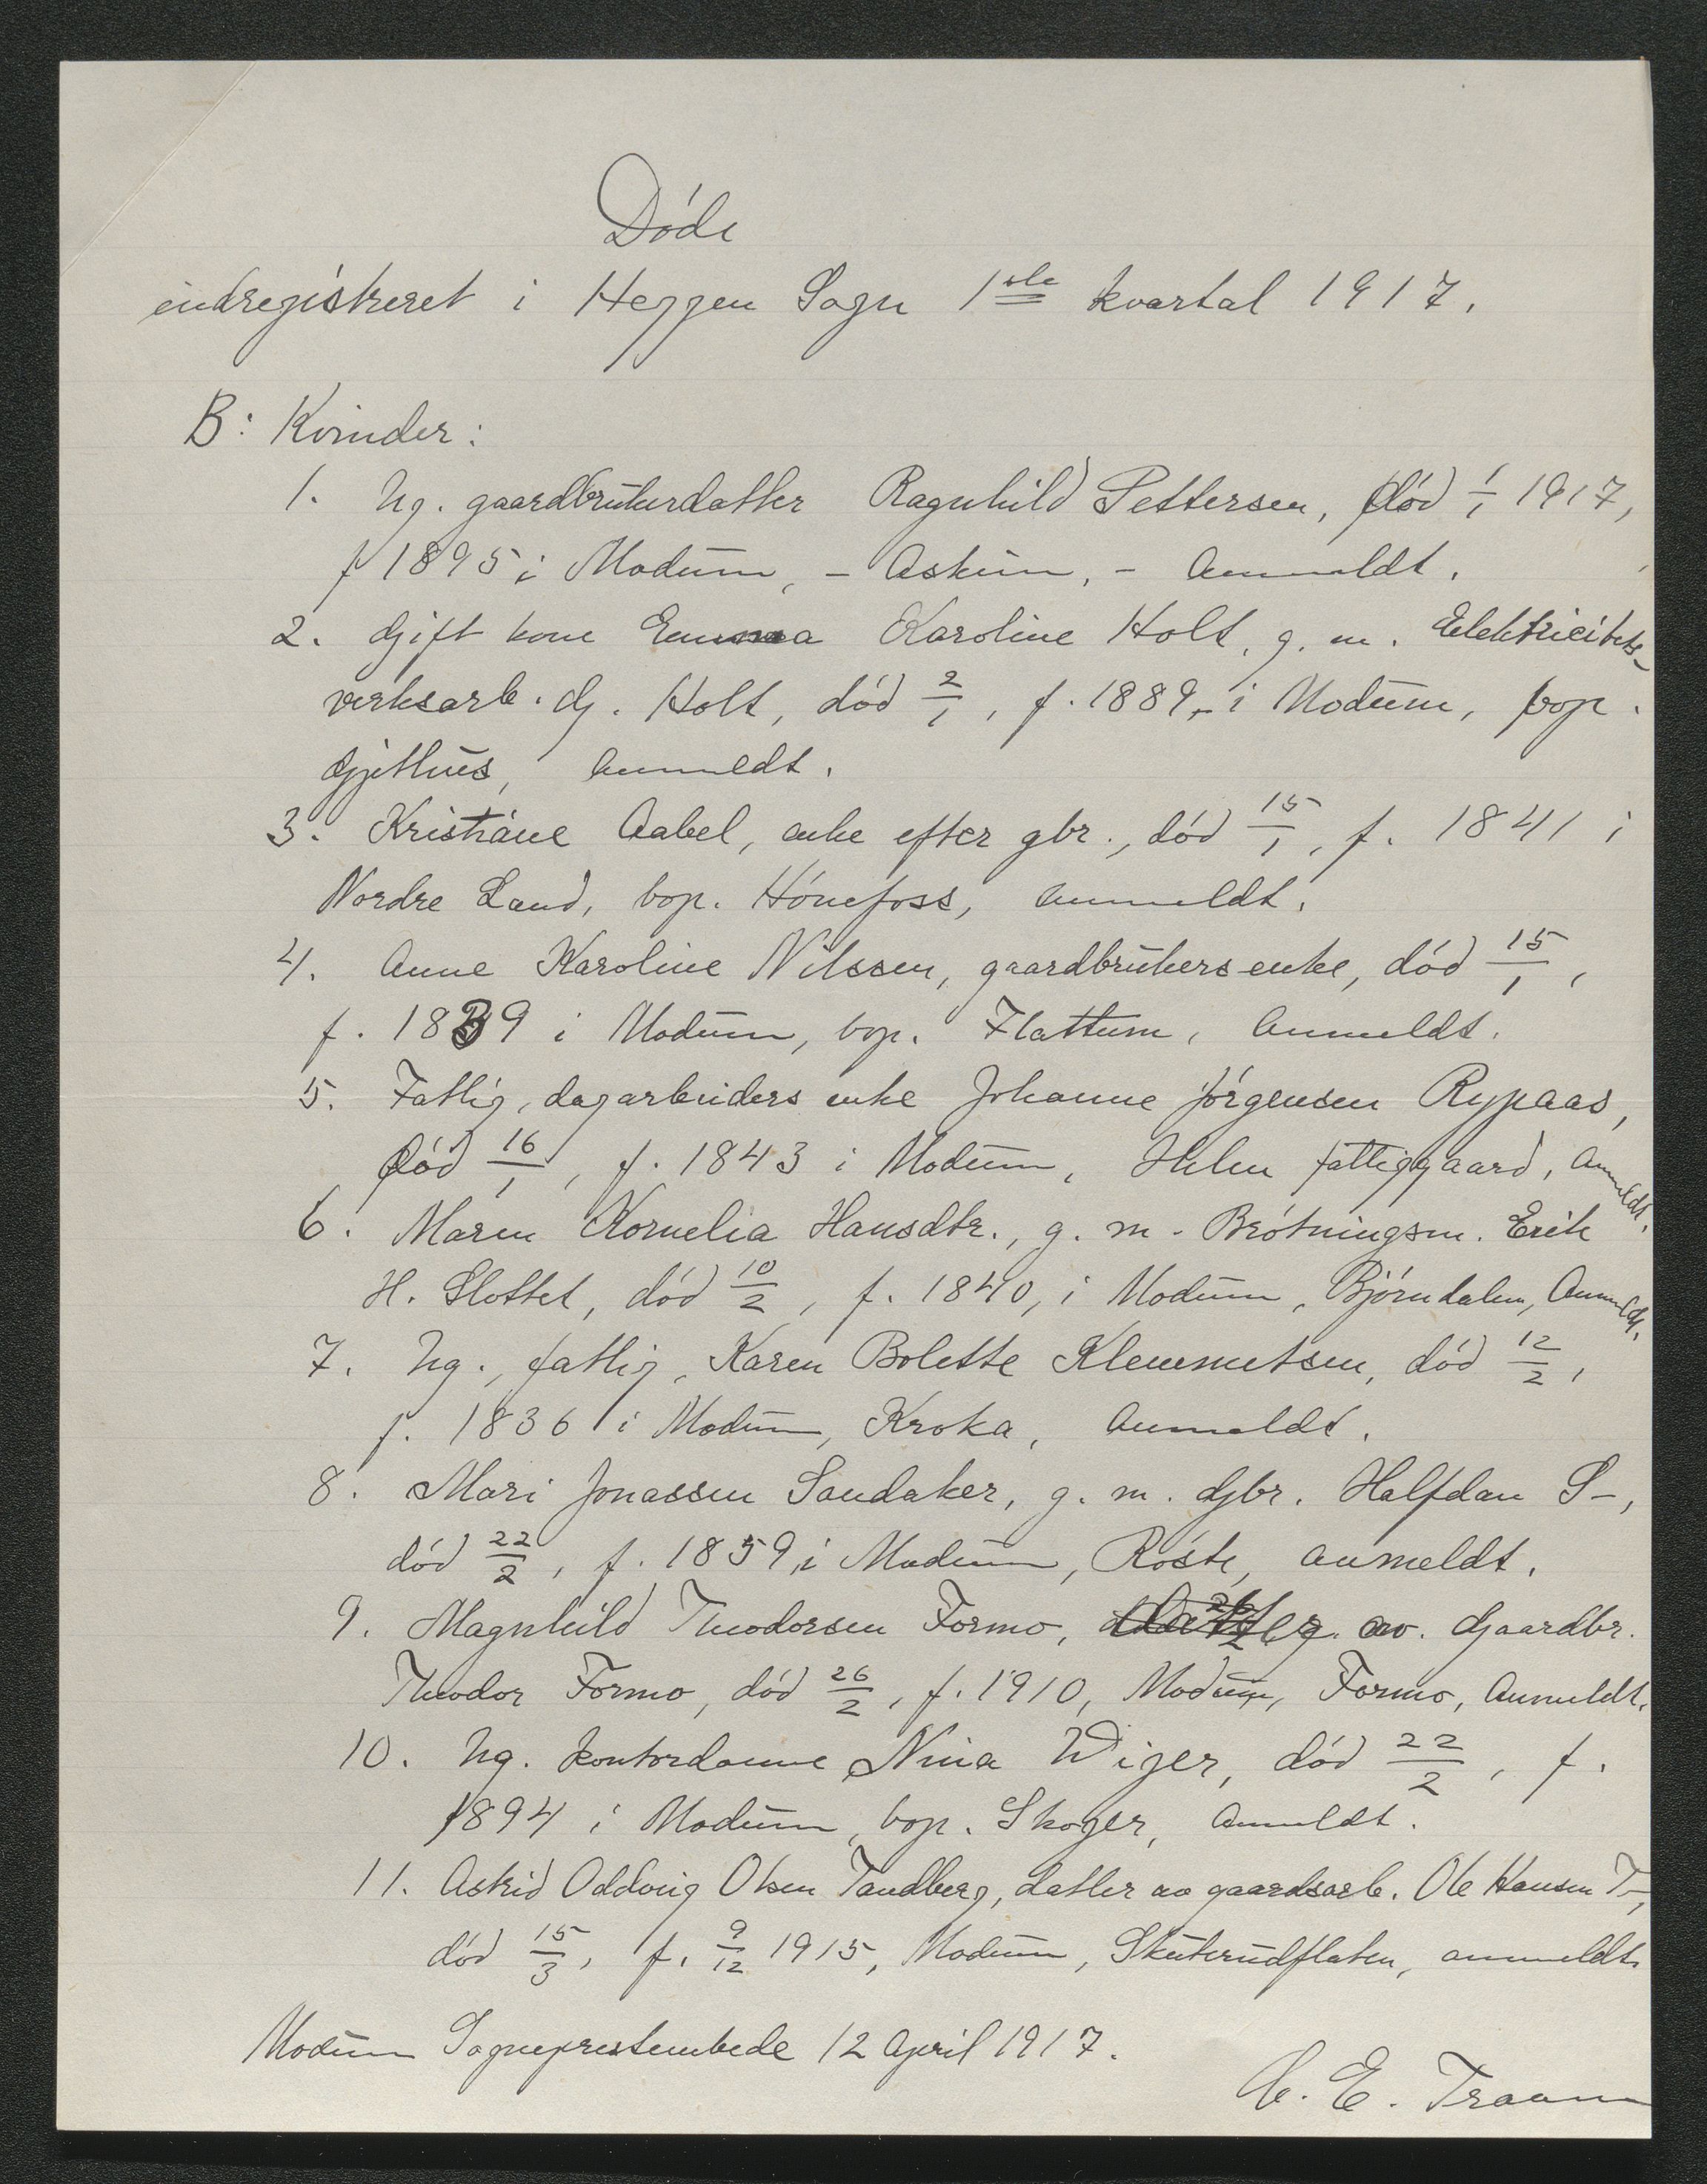 Døde
indregistreret i Heggen Sogn 1ste kvartal 1917.
B: Kvinder:
1. Ug. gaardbrukerdatter Ragnhild Pettersen, død 1/1 1917,
f 1895 i Modum, - Askim, - Anmeldt.
2. Gift kone Emma Karoline Holt, g. m. Elektricitets-
verksarb. G. Holt, død 2/1, f. 1889, i Modum, bop.
Gjethus, Anmeldt.
3. Kristiane Aabel, enke efter gbr., død 15/1, f. 1841 i
Nordre Land, bop. Hønefoss, Anmeldt.
4. Anne Karoline Nilssen, gaardbrukers enke, død 15/1,
f. 1839 i Modum, bop. Flattum, Anmeldt.
5. Fattig, dagarbeiders enke Johanne Jørgensen Rypaas,
død 16/1, f. 1843 i Modum, Helen fattiggaard, Anmeldt.
6. Maren Kornelia Hansdtr., g. m. Brøtningsm. Erik
H. Slottet, død 10/2, f. 1840, i Modum, Bjørndalen, Anmeldt.
7. Ug., fattig, Karen Bolette Klemmetsen, død 12/2,
f. 1836 i Modum, Kroka, Anmeldt.
8. Mari Jonassen Sandaker, g. m. Gbr. Halfdan S-,
død 22/2, f. 1859, i Modum, Røste, anmeldt.
9. Magnhild Theodorsen Formo, datter av. Gaardbr.
Theodor Formo, død 26/2, f. 1910, Modum, Formo, Anmeldt.
10. Ug. kontordame Nina Wiger, død 22/2, f.
1894 i Modum, bop. Skoger, Anmeldt.
11. Astrid Oddvig Olsen Tandberg, datter av gaardsarb. Ole Hansen T-,
død 15/3, f. 9/12 1915, Modum, Skuterudflaten, anmeldt.
Modum Sogneprestembede 12 April 1917.
C. E. Traaen